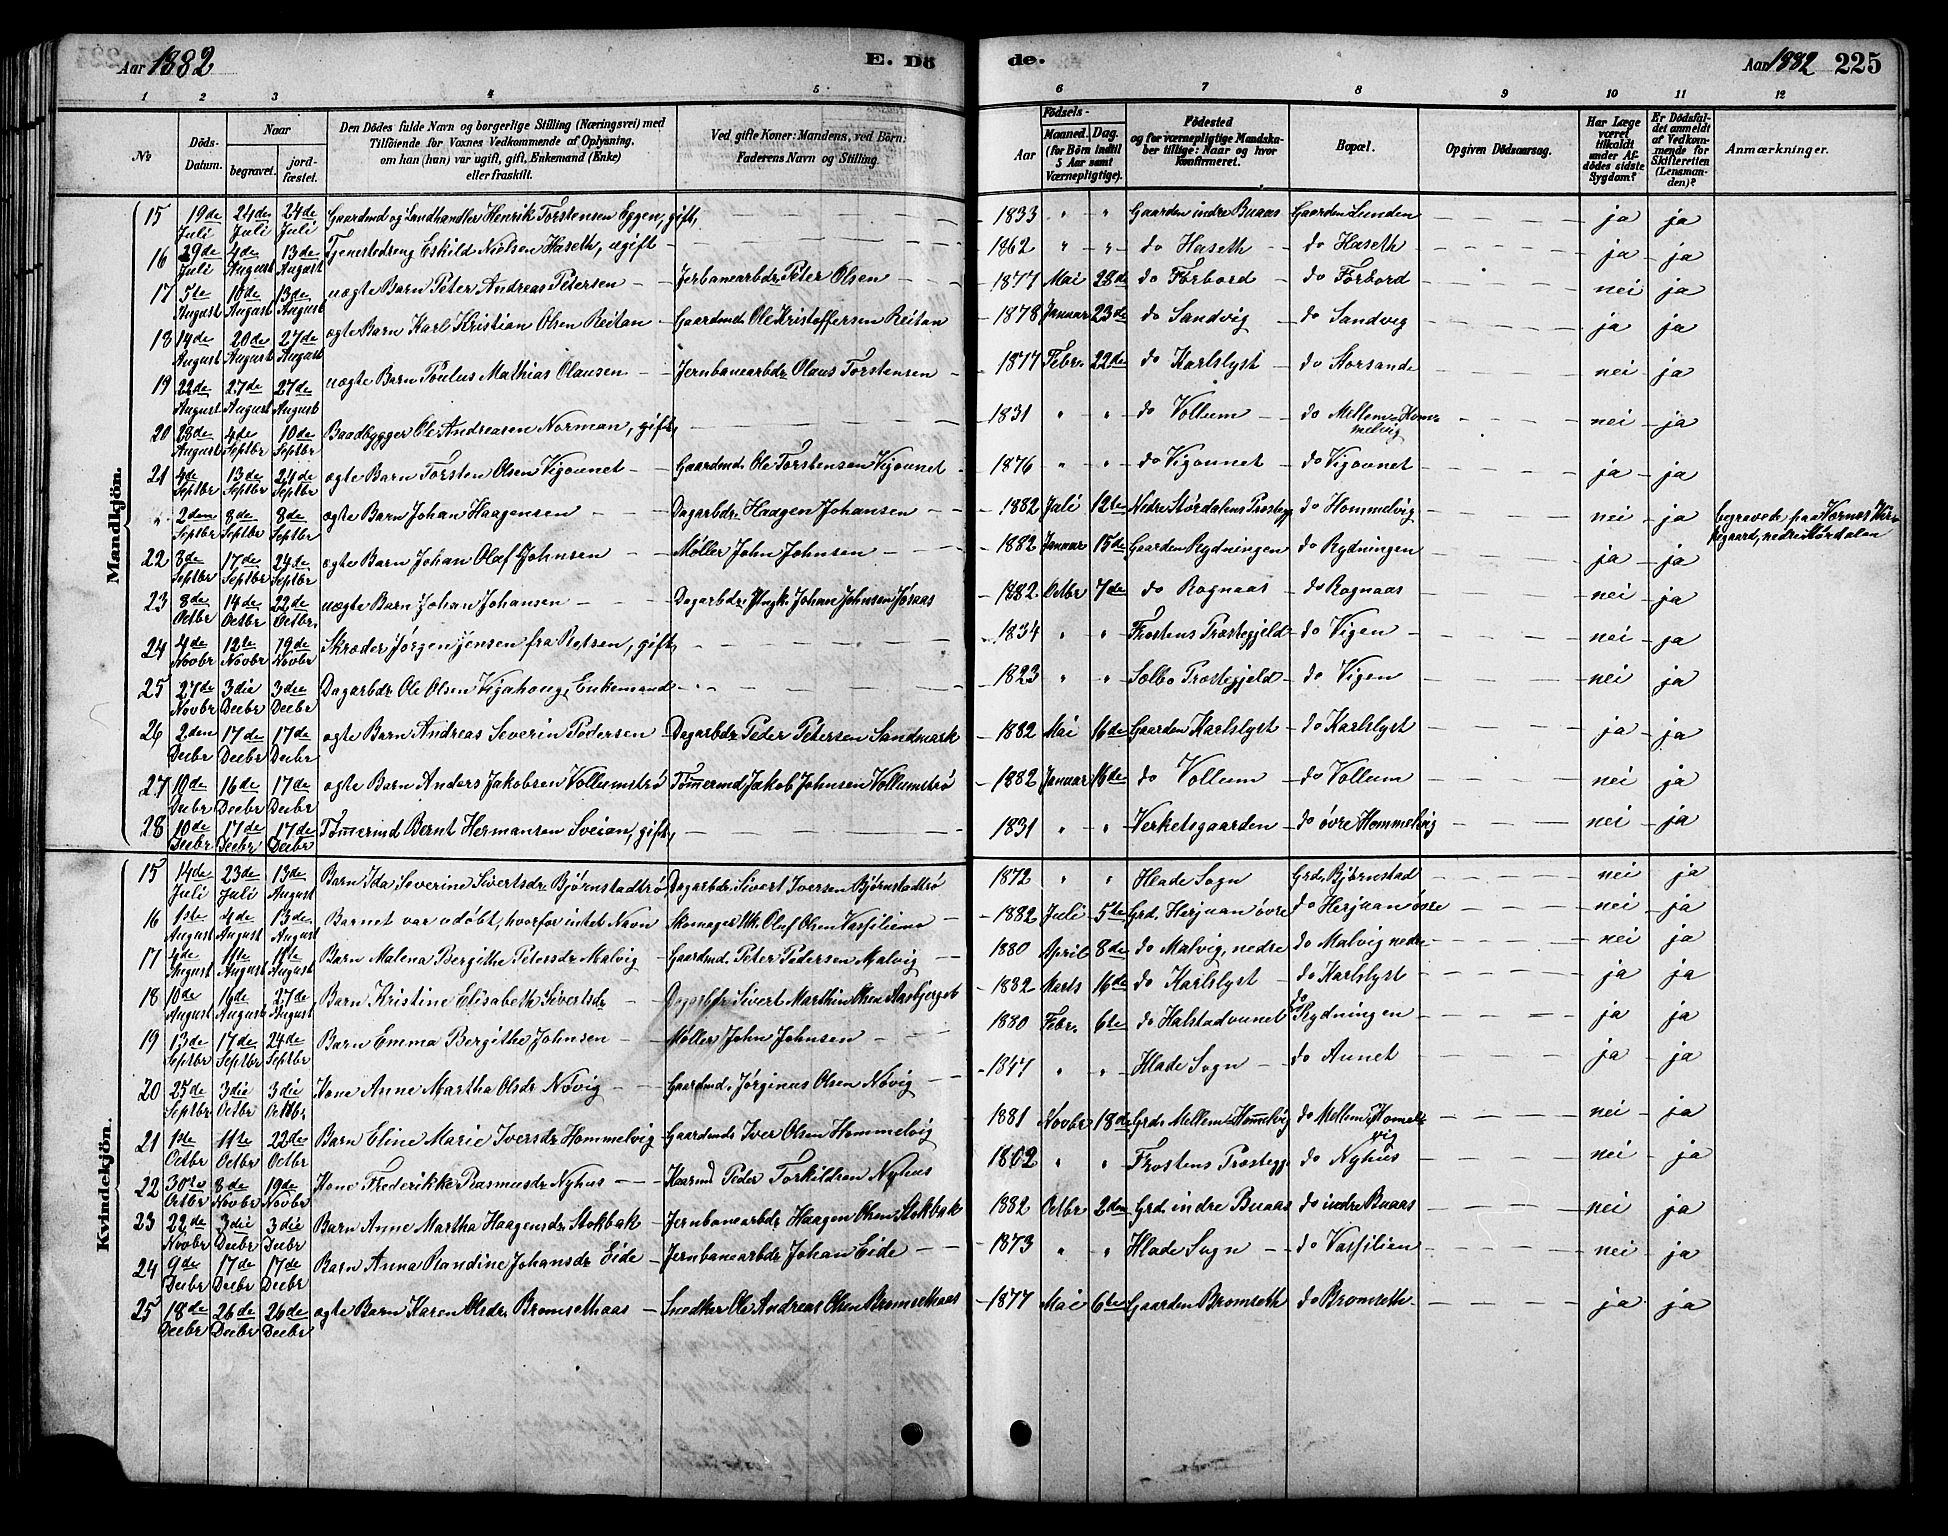 Aar 1882 E. Dö de. Aar 1882 225
1 2 3 4 5 6 7 8 9 10 11 12
№ Döds-Datum. Naar begravet. jordfæstet. Den Dödes fulde Navn og borgerlige Stilling (Næringsvei) med Tilföiende for Voxnes Vedkommende af Oplysning, om han (hun) var ugift, gift, Enkemand (Enke) eller fraskilt. Ved gifte Koner: Mandens, ved Börn: Faderens Navn og Stilling. Födsels- Aar Maaned. Dag. (for Börn indtil 5 Aar samt Værnepligtige). Födested og for værnepligtige Mandskaber tillige: Naar og hvor konfirmeret. Bopæl. Opgiven Dödsaarsag. Har Læge været tilkaldt under Afdödes sidste Sygdom? Er Dödsfaldet anmeldt af Vedkommende for Skifteretten (Lensmanden)? Anmærkninger.
Mandkjön.
15 19de Juli 24de Juli 24de Juli Gaardmd og Landhandler Henrik Torstensen Eggen, gift, 1833 " " Gaarden indre Buaas Gaarden Lunden ja ja
16 29de Juli 4de August 13de August Tjenestedreng Eskild Nielsen Haseth, ugift 1862 " " do Haseth do Haseth ja ja
17 5te August 10de August 13de August uægte Barn Peter Andreas Petersen Jerbanearbdr Peter Olsen 1877 Mai 28de do Forbord do Forbord nei ja
18 14de August 20de August 27de August ægte Barn Karl Kristian Olsen Reitan Gaardmd. Ole Kristoffersen Reitan 1878 Januar 23de do Sandvig do Sandvig ja ja
19 22de August 27de August 27de August uægte Barn Paulus Mathias Olausen Jernbanearbdr Olaus Torstensen 1877 Febr. 22de do Karlslyst do Storsande nei ja
20 28de August 4de Septbr 10de Septbr Baadbygger Ole Andreasen Norman, gift, 1831 " " do Vollum do Mellem-Hommelvig nei ja
21 4de Septbr 13de Septbr 24de Septbr ægte Barn Torsten Olsen Vigaunet Gaardmd. Ole Torstensen Vigaunet 1876 " " do Vigaunet do Vigaunet ja ja
" 2den Septbr 8de Septbr 8de Septbr ægte Barn Johan Haagensen Dagarbdr. Haagen Johansen 1882 Juli 12te Nedre Størdalens Prestegj do Hommelvig nei ja begravede paa Værnes Kirkegaard, nedre Størdalen
22 8de Septbr 17de Septbr 24de Septbr ægte Barn Johan Olaf Johnsen Møller John Johnsen 1882 Januar 15de Gaarden Rydningen do Rydningen ja ja
23 8de Octbr 14de Octbr 22de Octbr. uægte Barn Johan Johansen Dagarbdr. Ungk. Johan Johnsen 1882 Octbr 7de do Rognaas do Rognaas nei ja
24 4de Novbr 12te Novbr 19de Novbr Skræder Jørgen Jensen fra, gift, 1834 " " Frostens Præstegjeld do Vigen nei ja
25 27de Novbr 3die Decbr 3die Decbr Dagarbdr Ole Olsen Vigahaug, Enkemand 1823 " " Sælbo Præstegjeld do Vigen nei ja
26 2den Decbr 17de Decbr 17de Decbr ægte Barn Andreas Severin Pedersen Dagarbdr Peder Petersen Sandmark 1882 Mai 16de Gaarden Karlslyst do Karlslyst ja ja
27 10de Decbr 16de Decbr 17de Decbr ægte Barn Anders Jakobsen Vollumstrø Tømermd Jakob Johnsen Vollumstrø 1882 Januar 16de do Vollum do Vollum nei ja
28 10de Decbr 17de Decbr 17de Decbr Tømermd Bernt Hermansen Sveian, gift, 1831 " " Verketsgaarden do øvre Hommelvig nei ja
Kvindekjön.
15 14de Juli 23de Juli 13de August Barn Ida Severine Sivertsdr Bjørnstadtrø Dagarbdr. Sivert Iversen Bjørnstadtrø 1872 " " Hlade Sogn Grd. Bjørnstad nei ja
16 1ste August 4de August 13de August Barnet var udøbt, hvorfor intet Navn Skomager Olaf Olsen Vasfilien 1882 Juli 5te Grd. Herjuan øvre do Herjuan øvre nei ja
17 4de August 11te August 11te August Barn Malena Bergithe Petersdr Malvig Gaardmd. Peter Pedersen Malvig 1880 April 8de do Malvig, nedre do Malvig nedre nei ja
18 10de August 16de August 27de August Barn Kristine Elisabeth Sivertsdr Dagarbdr Sivert Marthin Olsen Aasbjerget 1882 Marts 16de do Karlslyst do Karlslyst ja ja
19 13de Septbr 17de Septbr 24de Septbr Barn Emma Bergithe Johnsen Møller John Johnsen 1880 Febr. 6te do Halstadvunet do Rydningen ja ja
20 25de Septbr 3die Octbr 3die Octbr Kone Anne Martha Olsdr Nøvig Gaardmd. Jørginus Olsen Nøvig 1847 " " Hlade Sogn do Aunet ja ja
21 1ste Octbr 11te Octbr 22de Octbr Barn Eline Marie Iversdr Hommelvig Gaardmd. Iver Olsen Hommelvig 1881 Novbr 18de Grd. Mellem-Hommelvig do Mellem-Hommelvig nei ja
22 30te Octbr 8de Novbr 19de Novbr Kone Frederikke Rasmusdr Nyhus Peder Torkildsen Nyhus " " Frostens Præstegj do Nyhus nei ja
23 22de Novbr 3die Decbr 3die Decbr Barn Anne Martha Haagensdr Stokbak Jernbanearbdr Haagen Olsen Stokbak 1882 Octbr 2den Grd. indre Buaas do indre Buaas nei ja
24 9de Decbr 17de Decbr 17de Decbr Barn Anna Randine Johansdr Eide Jernbanearbdr Johan Eide 1873 " " Hlade Sogn do Vasfilien nei ja
25 18de Decbr 26de Decbr 26de Decbr ægte Barn Karen Olsdr. Bromsethaas Snedker Ole Andreas Olsen Bromsethaas 1877 Mai 6te Gaarden Bromseth do Bromseth ja ja